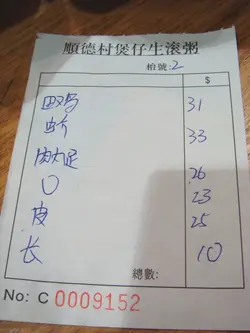 順德村煲仔生滚粥
枱號: 2
$
田鸡 31
蚧 33
肉丸足 26
23
皮 25
长 10
總數:
No: C 0009152